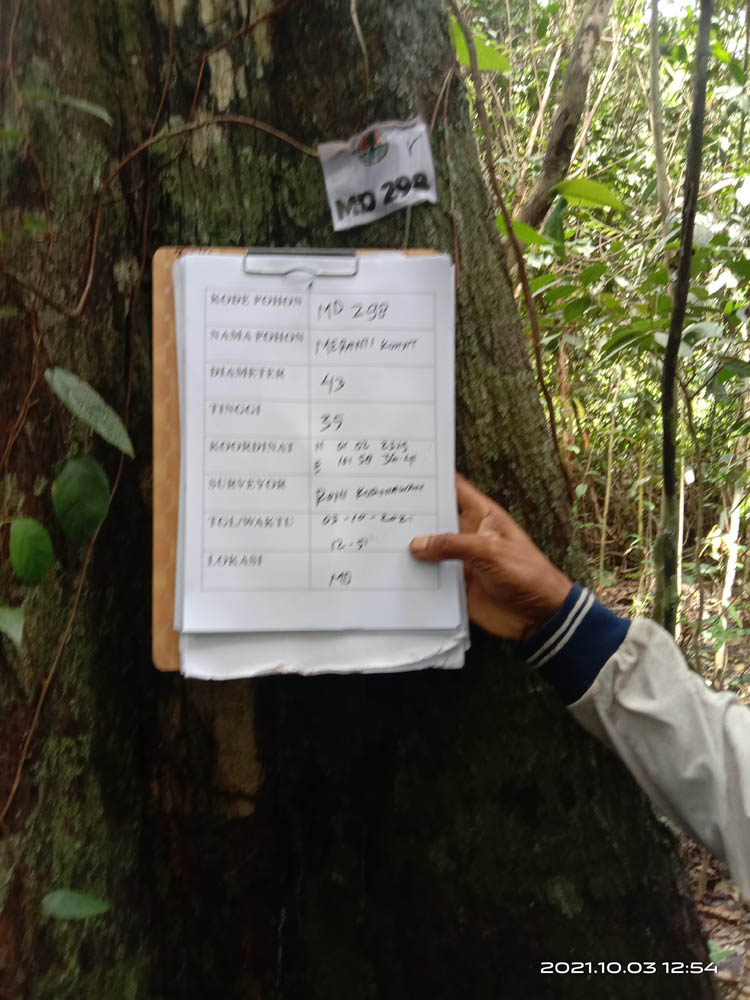 MD 298
KODE POHON MD 298
NAMA POHON MERANTI KUNYIT
DIAMETER 43
TINGGI 35
KOORDINAT N 01 02
E 101 50
SURVEYOR
TGL/WAKTU 03-10-2021
12-51
LOKASI MD
2021.10.03 12:54